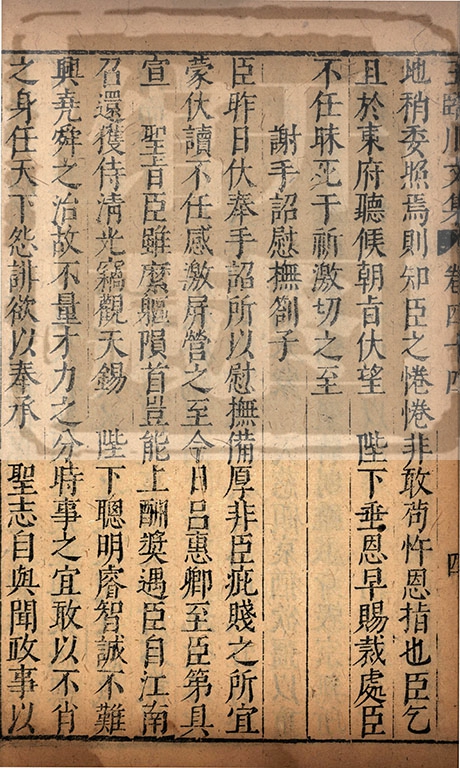 王臨川文集 卷四十四 四
地稍委照焉則知臣之惓惓非敢茍忤恩指也臣乞
且於東府聽候朝㫖伏望 陛下垂恩早賜裁處臣
不任昧死干祈激切之至
謝手詔慰撫劄子
臣昨日伏奉手詔所以慰撫備厚非臣疵賤之所宜
蒙伏讀不任感激屏營之至今日呂惠卿至臣第具
宣 聖㫖臣雖縻軀隕首豈能上酬奬遇臣自江南
召還獲侍清光竊觀天錫 陛下聰明睿智誠不難
興堯舜之治故不量才力之分時事之宜敢以不肖
之身任天下怨誹欲以奉承 聖志自與聞政事以